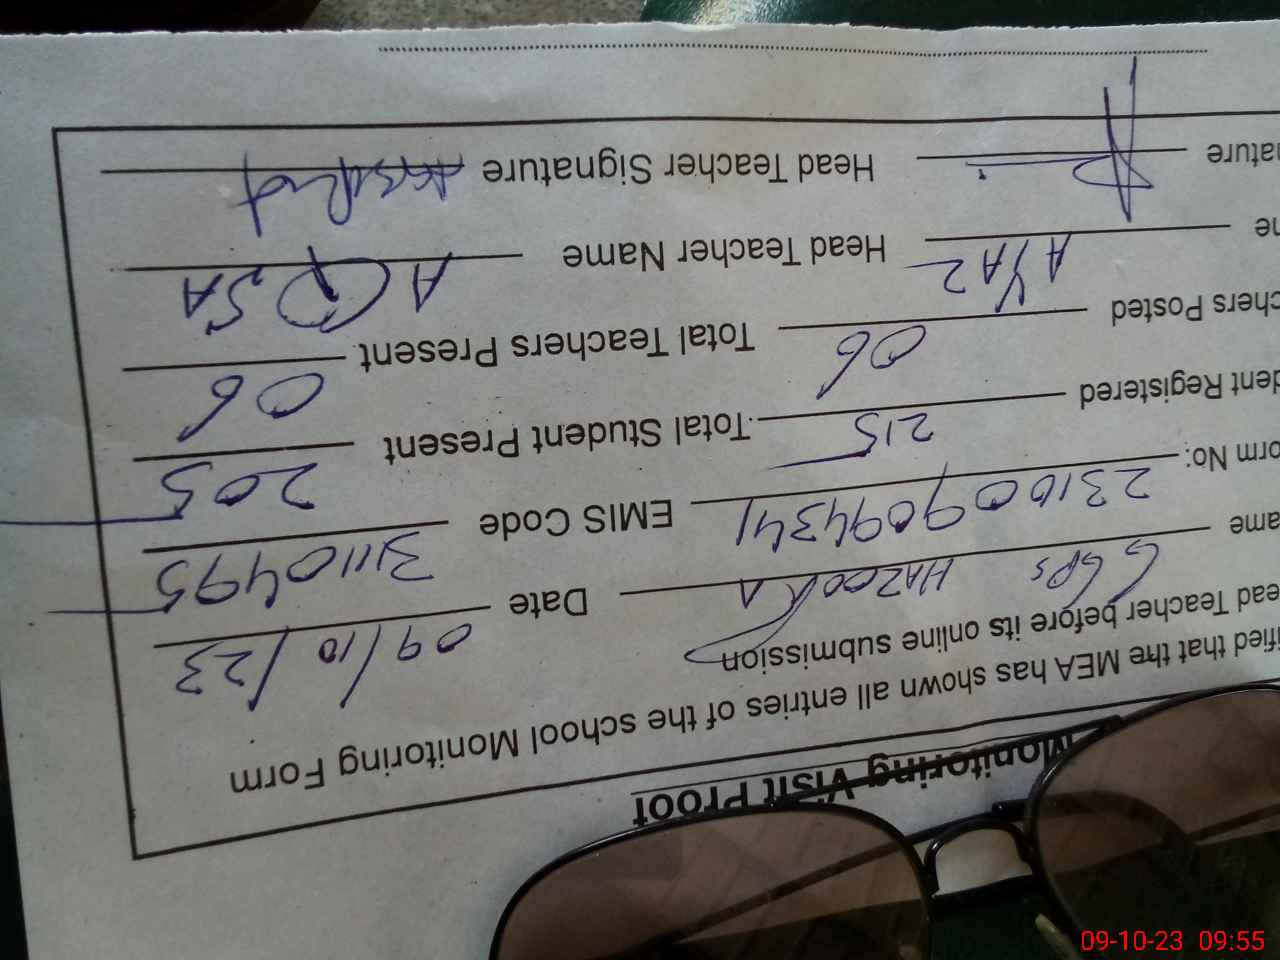 Monitoring Visit Proof
ified that the MEA has shown all entries of the school Monitoring Form
ead Teacher before its online submission
ame GGPS HAZOORA Date 09/10/23
orm No: 231009094341 EMIS Code 31110495
dent Registered 215 Total Student Present 205
chers Posted 06 Total Teachers Present 06
ne AYAZ Head Teacher Name AQSA
nature Head Teacher Signature
09-10-23 09:55